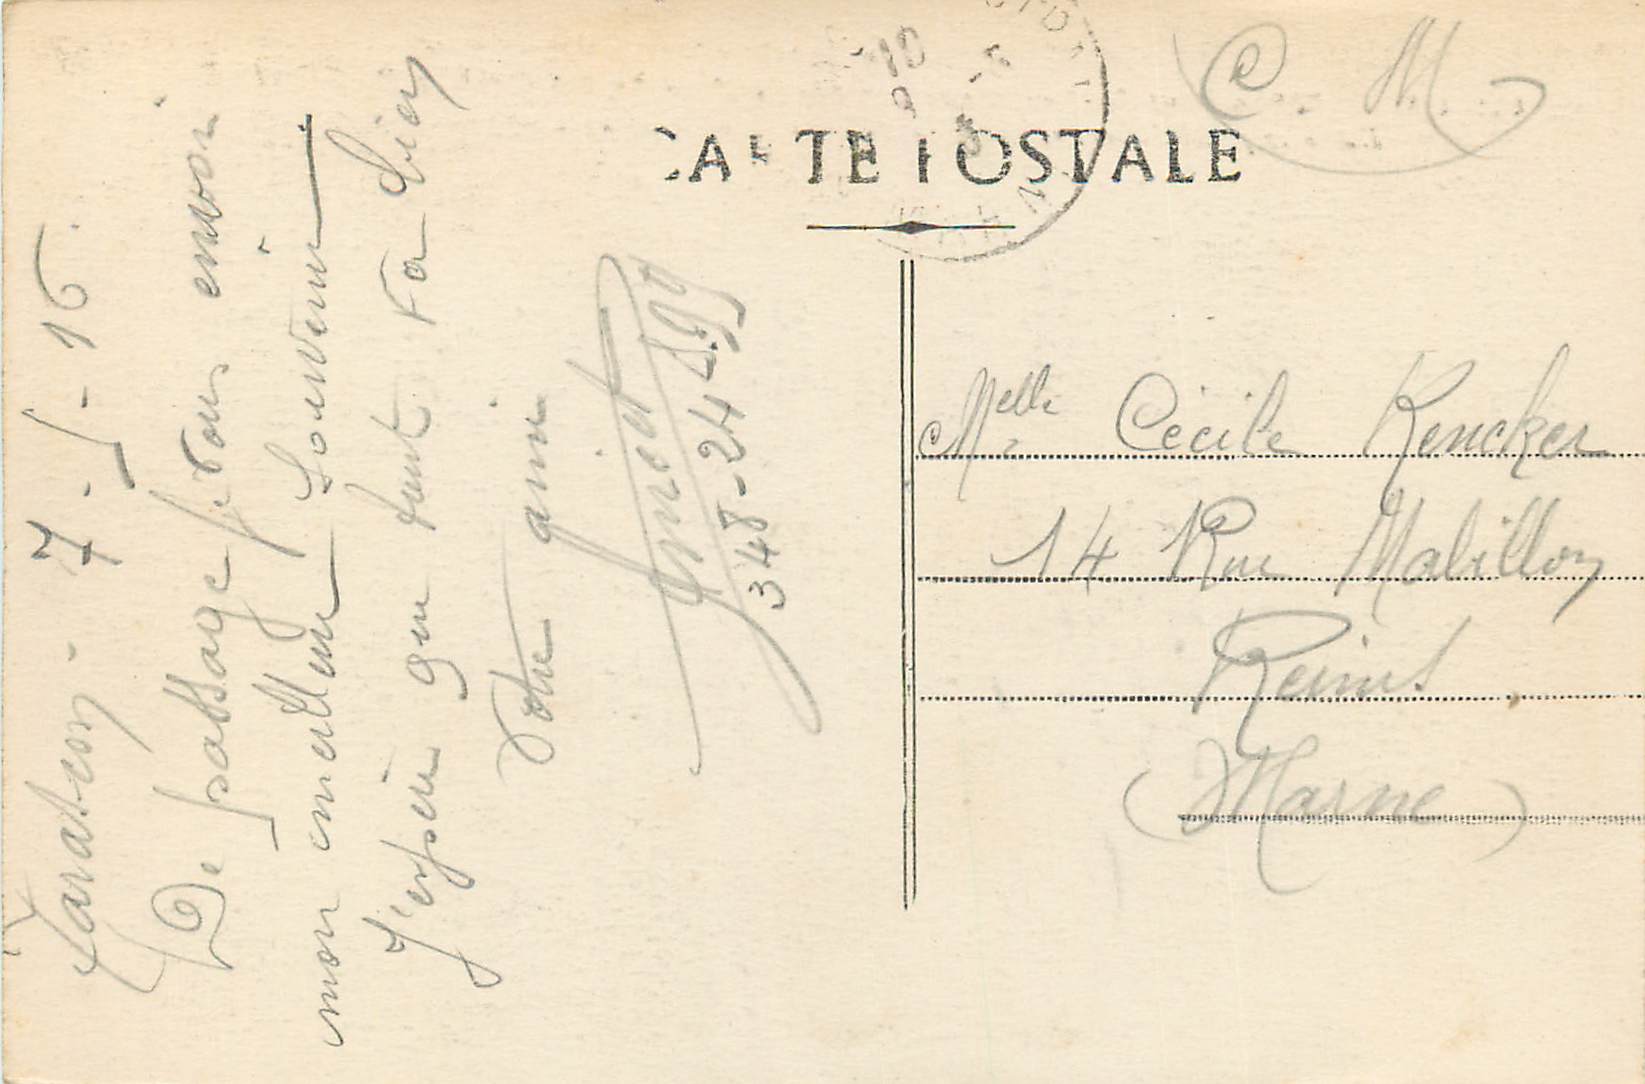 C M
CARTE POSTALE
7-5-16.
De passage je vous envoi
mon meilleur souvenir
J'espère que tout va bien
Votre ami
348-24
Melle Cécile Rencker
14 Rue Mabillon
Reims
(Marne)